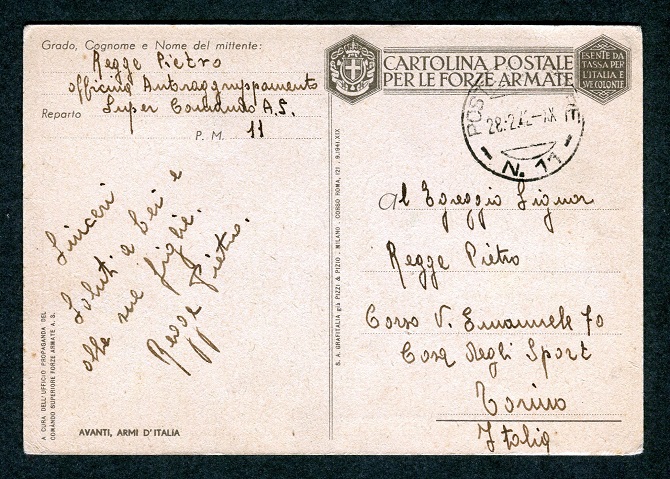 Grado, Cognome e Nome del mittente:
Regge Pietro
Officina Autoraggruppamento
Super Comando A.S.
Reparto
P. M. 11
Sinceri
Saluti a Lei e
alle sue figlie.
Regge Pietro.
A CURA DELL'UFFICIO PROPAGANDA DEL
COMANDO SUPERIORE FORZE ARMATE A. S.
AVANTI, ARMI D'ITALIA
S. A. GRAFITALIA già PIZZI & PIZIO - MILANO - CORSO ROMA, 121 - 9.1941.XIX
CARTOLINA POSTALE
PER LE FORZE ARMATE
ESENTE DA
TASSA PER
L'ITALIA E
SUE COLONIE
POST
28.2.42-XX
N. 11
Al Egreggio Signor
Regge Pietro
Corso V. Emanuele 70
Casa degli Sport
Torino
Italia